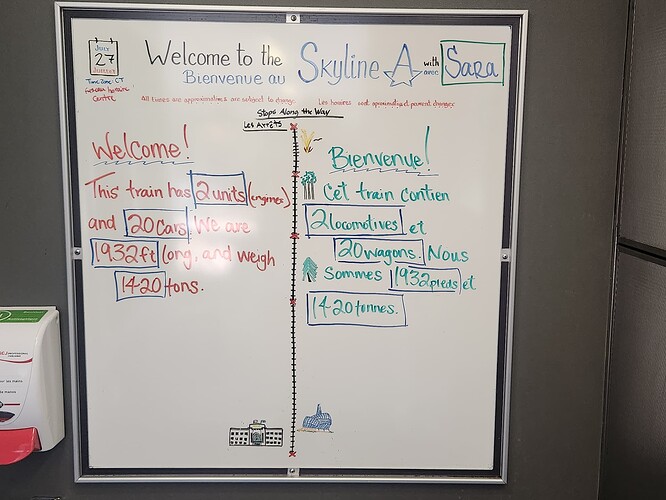 July
27
Juillet
Time Zone: CT
Fuseau horaire:
Centre
Welcome to the
Bienvenue au
Skyline A
with
avec
Sara
All times are approximations are subject to change.
Les horaires sont approximatifs
changer
Stops Along the Way
Les Arrêts
Welcome!
This train has 2 units (engines)
and 20 Cars. We are
1932 ft long, and weigh
1420 tons.
Bienvenue!
Cet train contien
2 locomotives, et
20 wagons. Nous
Sommes 1932 pieds et
1420 tonnes.